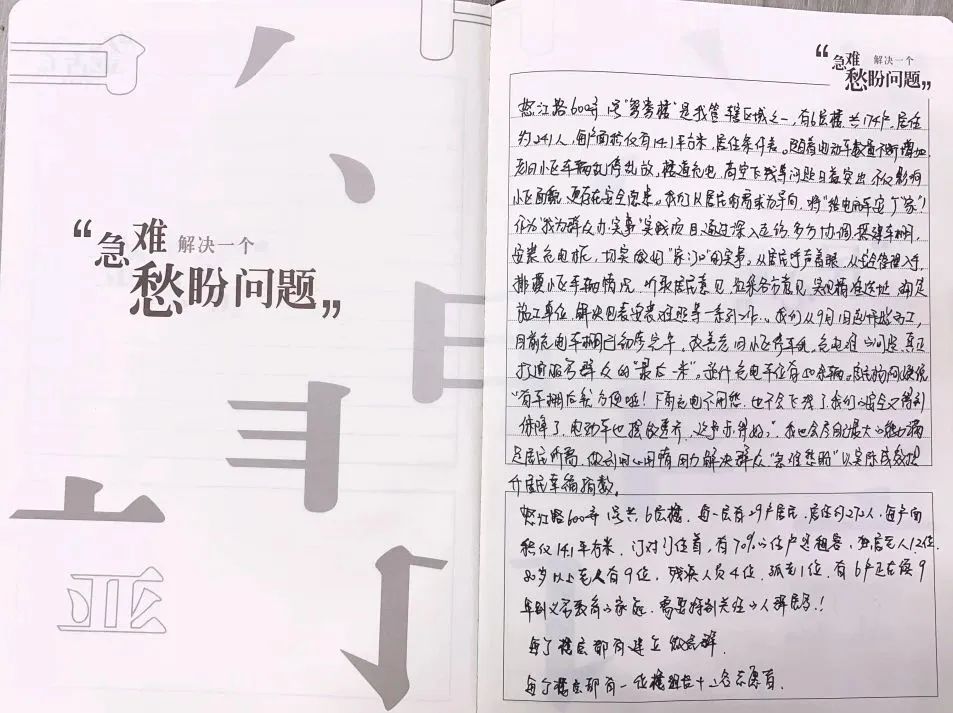 “急难 解决一个
愁盼问题”
“急难 解决一个
愁盼问题”
怒江路600弄1号“鸳鸯楼”是我管辖区域之一,有6层楼共174户,居住
约241人,每户面积仅有14.1平方米,居住条件差。随着电动车数量不断增加,
老旧小区车辆乱停乱放,楼道充电,高空飞线等问题日益突出,不仅影响
小区面貌,更存在安全隐患。我们从居民的需求为导向,将“给电瓶车安个‘家’”
作为“我为群众办实事”实践项目,通过深入走访多方协调,搭建车棚,
安装充电桩,切实做好“家门口”的实事。从居民呼声着眼,从安全管理入手,
排摸小区车辆情况,听取居民意见,征求各方意见,
施工单位,解决电表安装难题等一系列工作。我们从9月1日起开始动工,
目前充电车棚已初步完工,改善老旧小区停车乱、充电难的问题,真正
打通服务群众的“最后一米”。总计充电车位有50余辆。居民们纷纷说
“有车棚后我方便啦!下雨充电不用愁,也不会飞线了,我们的安全又得到
保障了,电动车也摆放整齐,这事办得好。”我也会尽自己最大的能力满
足居民所需,做到用心用情用力解决群众“急难愁盼”以实际成效提
升居民幸福指数。
怒江路600弄1号共6层楼,每一层有29户居民,居住约272人,每户面
积仅14.1平方米,门对门住着,有70%的住户是租客,独居老人12位,
80岁以上老人有9位,残疾人员4位,孤老1位,有6户正在候9
年制义务教育的家庭,需要特别关注的人群居多!
每个楼层都有建立微信群.
每个楼层都有一位楼组长+二名志愿者.